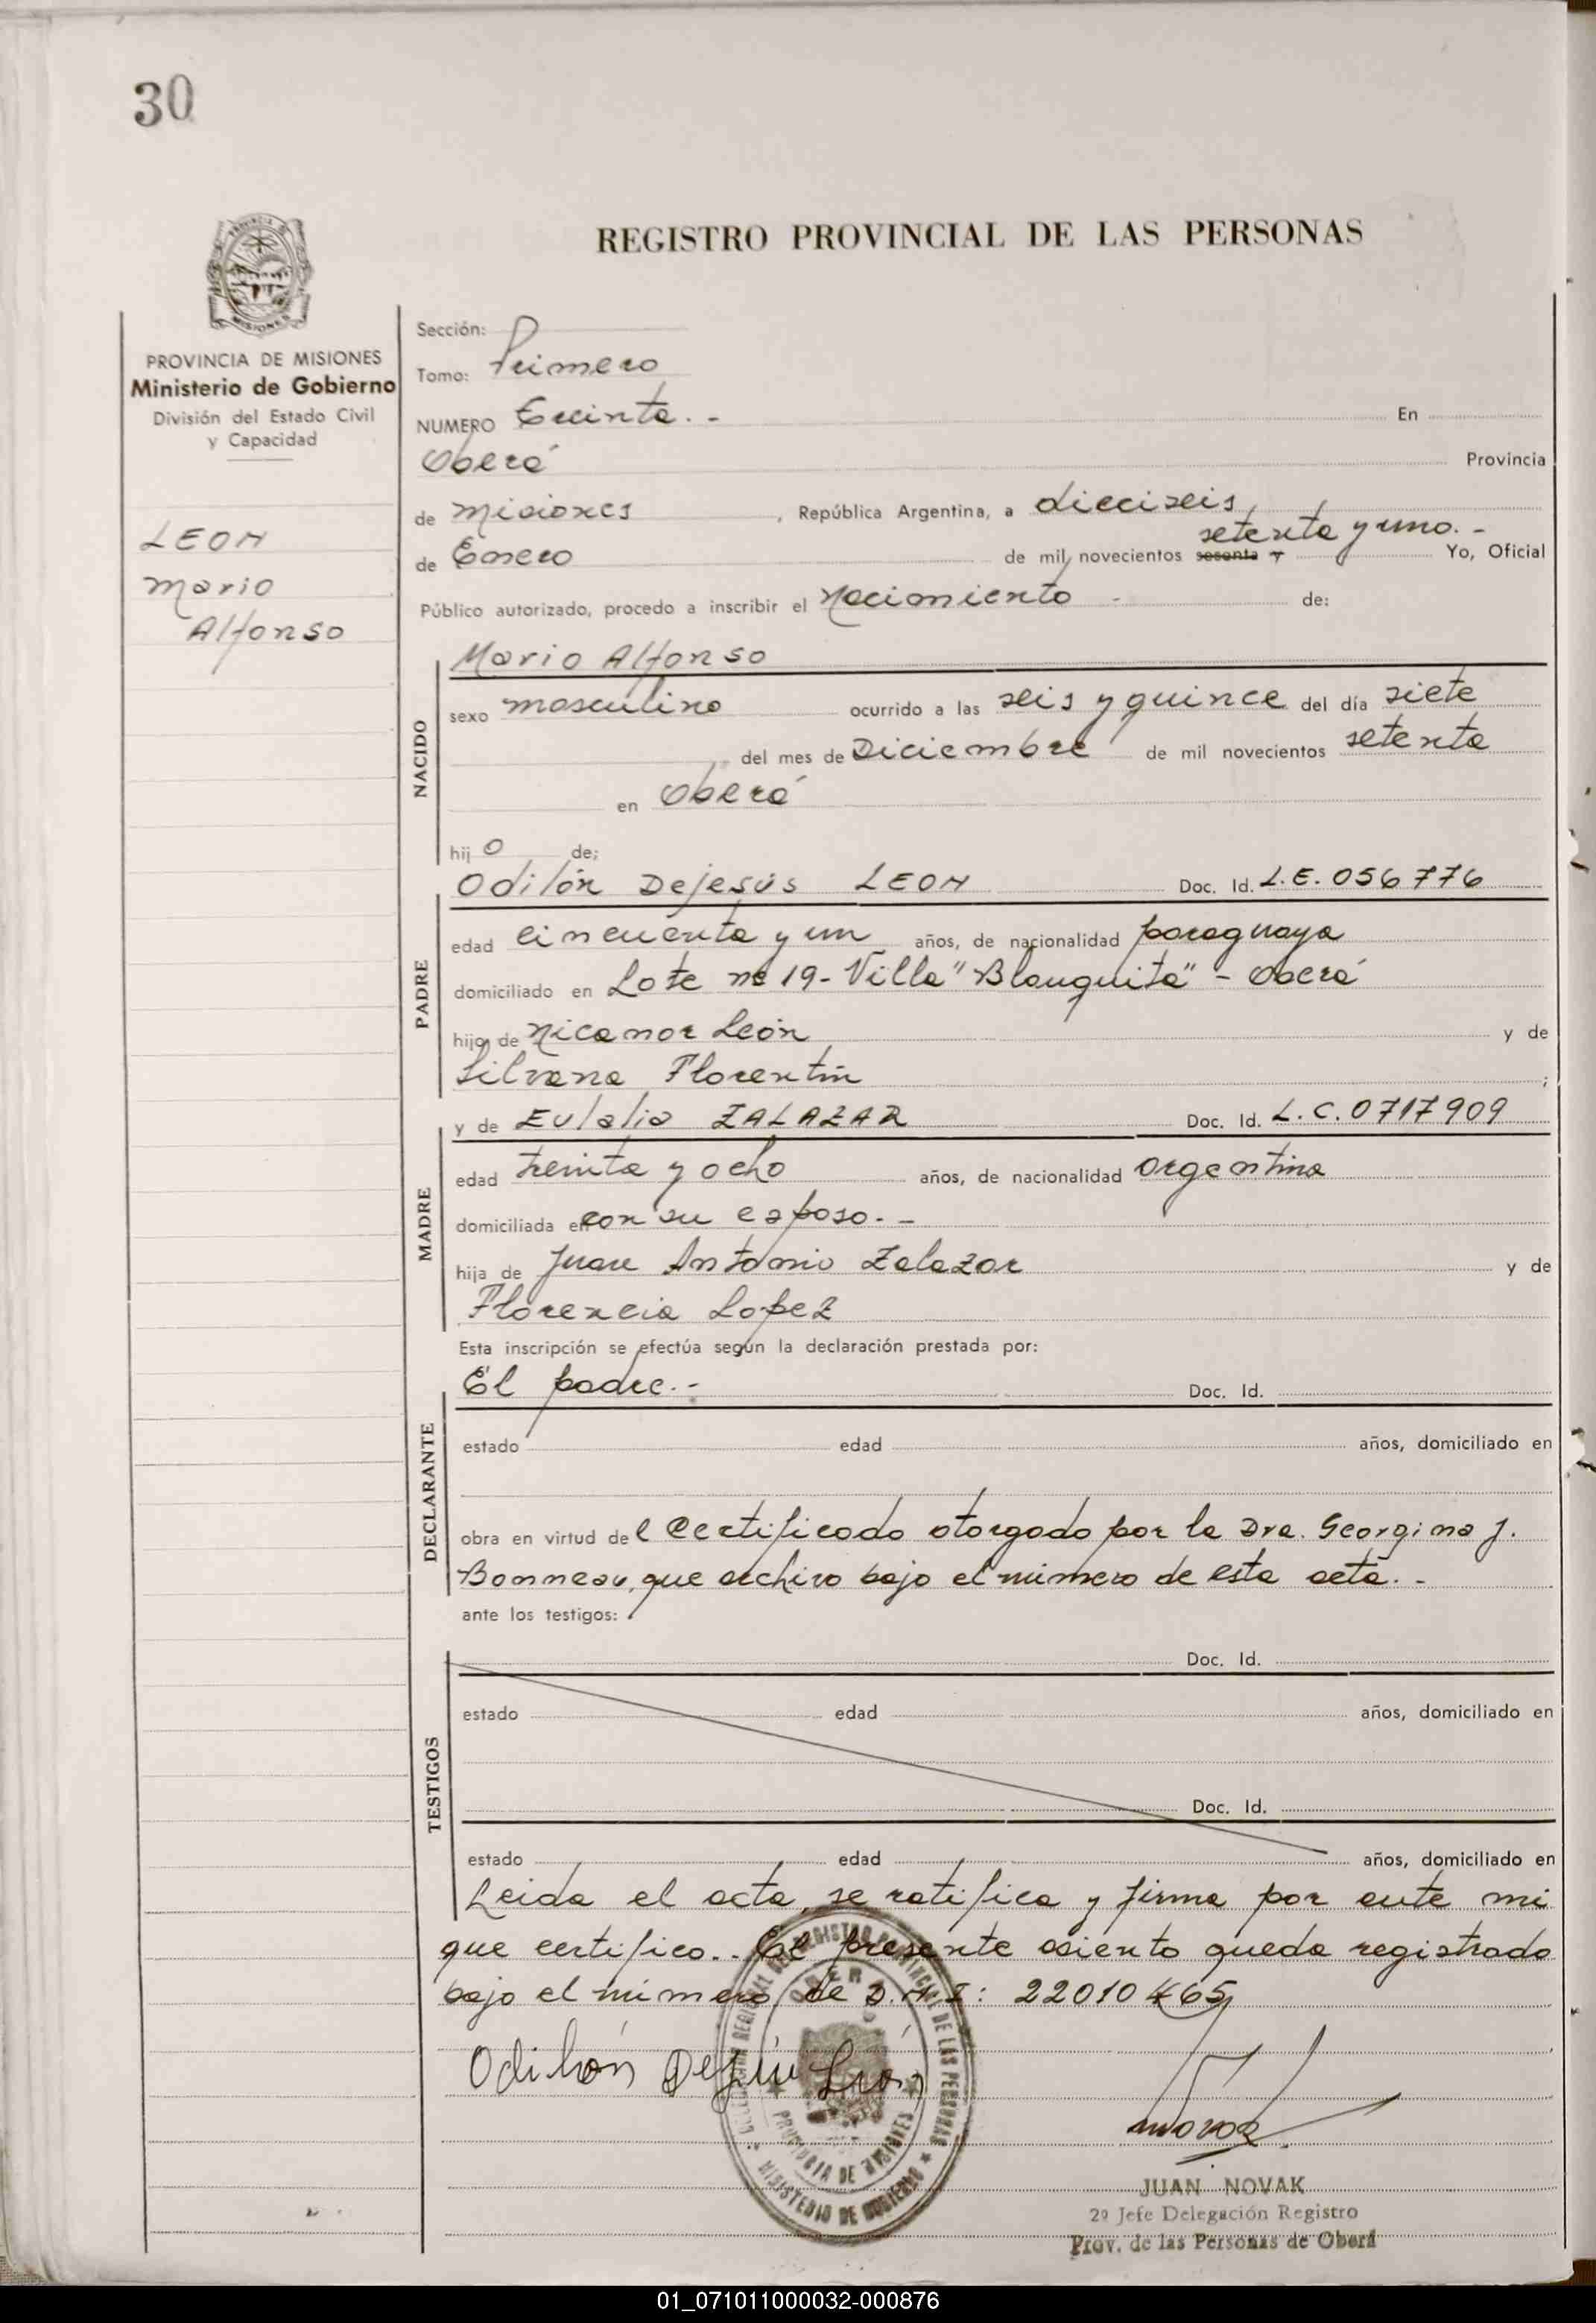 30
REGISTRO PROVINCIAL DE LAS PERSONAS
PROVINCIA DE MISIONES
Ministerio de Gobierno
División del Estado Civil
y Capacidad
LEON
Mario
Alfonso
Sección:
Tomo: Primero
NUMERO Treinta.- En
Oberá Provincia
de Misiones, República Argentina, a dieciseis
de Enero de mil novecientos sesenta y setenta y uno.- Yo, Oficial
Público autorizado, procedo a inscribir el Nacimiento - de:
Mario Alfonso
NACIDO
sexo masculino ocurrido a las seis y quince del día siete
del mes de Diciembre de mil novecientos setenta
en Oberá
hijo de;
Odilón Dejesús LEON Doc. Id. L.E. 056776
PADRE
edad cincuenta y un años, de nacionalidad paraguaya
domiciliado en Lote nº 19- Villa "Blanquita" - Oberá
hijo de Nicanor León y de
Silvana Florentin ;
y de Eulalia ZALAZAR Doc. Id. L.C. 0717909
MADRE
edad treinta y ocho años, de nacionalidad argentina
domiciliada en con su esposo.-
hija de Juan Antonio Zalazar y de
Florencia Lopez
Esta inscripción se efectúa según la declaración prestada por:
El padre.- Doc. Id.
DECLARANTE
estado edad años, domiciliado en
obra en virtud del Certificado otorgado por la Dra. Georgina J.
Bonneau, que archivo bajo el número de esta acta.-
ante los testigos:
Doc. Id.
TESTIGOS
estado edad años, domiciliado en
Doc. Id.
estado edad años, domiciliado en
Leida el acta, se ratifica y firma por ante mi
que certifico.. El presente asiento queda registrado
bajo el número de D.N.I: 22010465
Odilón Dejesús León
Novak
JUAN NOVAK
2º Jefe Delegación Registro
Prov. de las Personas de Oberá
REGISTRO PROVINCIAL DE LAS PERSONAS
OBERA
PROVINCIA DE MISIONES
MINISTERIO DE GOBIERNO
01_071011000032-000876